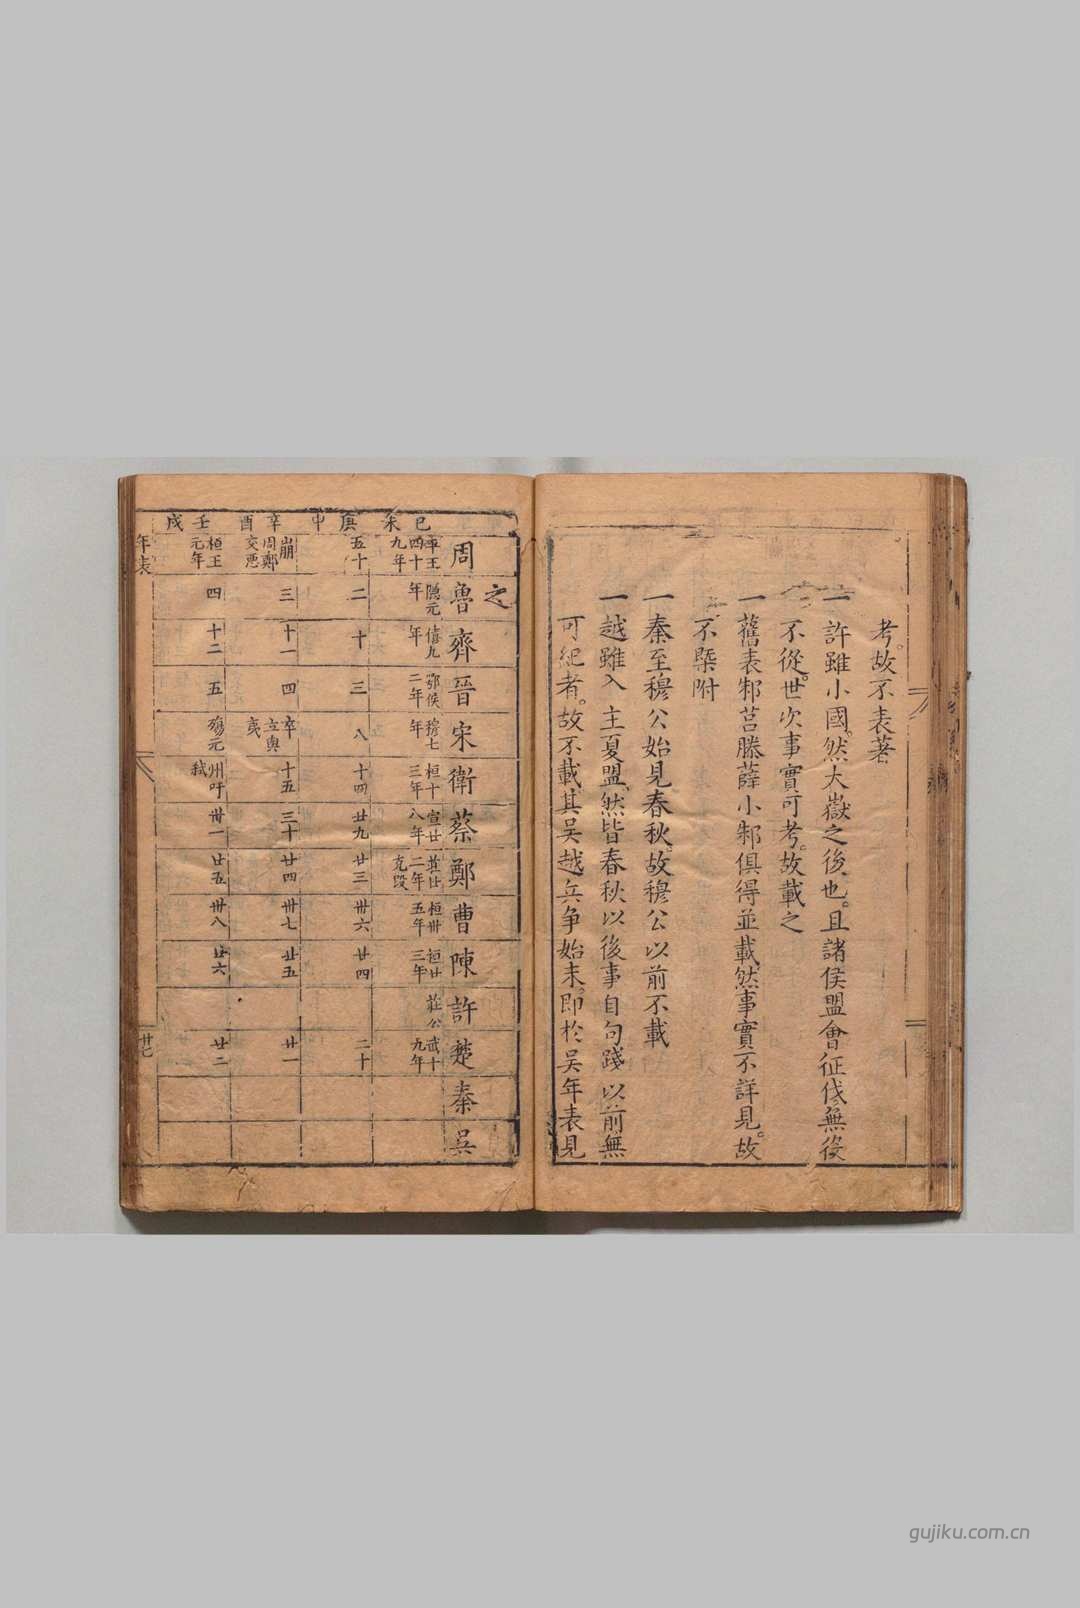 考。故不表著
一許雖小國。然大嶽之後也。且諸侯盟會征伐無役
不從。世次事實可考。故載之
一舊表邾莒滕薛小邾俱得並載。然事實不詳見。故
不槩附
一秦至穆公始見春秋。故穆公以前不載
一越雖入主夏盟。然皆春秋以後事自句踐以前無
可紀者。故不載。其吴越兵争始末。即於吴年表見
之
周 魯 齊 晉 宋 衛 蔡 鄭 曹 陳 許 楚 秦 吴
己未 平王四十九年 隱元年 僖九年 鄂侯二年 穆七年 桓十三年 宣廿八年 莊廿二年克段 桓卅五年 桓廿三年 莊公 武十九年
庚申 五十 二 十 三 八 十四 廿九 廿三 卅六 廿四 二十
辛酉 崩周鄭交惡 三 十一 四 卒立與夷 十五 三十 廿四 卅七 廿五 廿一
壬戌 桓王元年 四 十二 五 殤元 州吁弒 卅一 廿五 卅八 廿六 廿二
年表 廿七
gujiku.com.cn